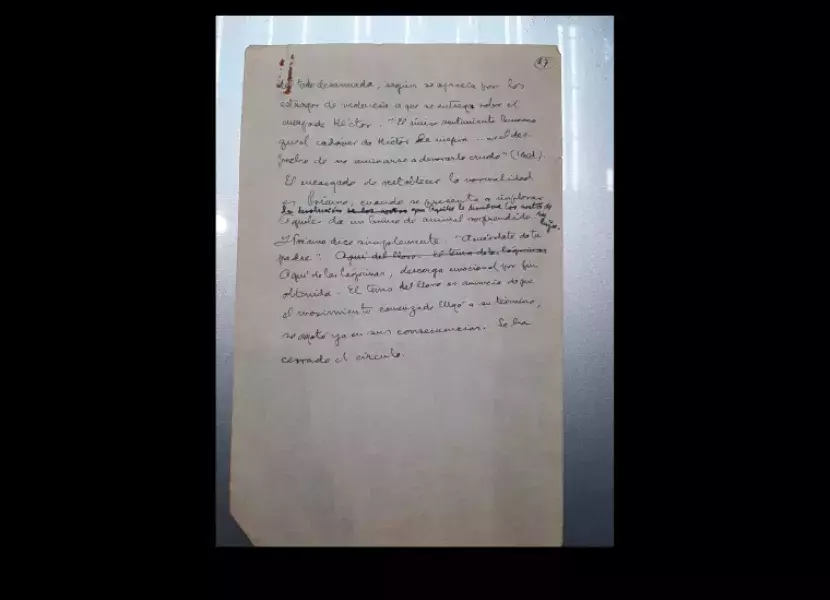 27
todo desarmada, según se aprecia por los
estragos de violencia a que se entrega sobre el
cuerpo de Héctor. "El único sentimiento humano
que el cadáver de Héctor le inspira ... es el des-
pecho de no animarse a devorarlo crudo" (Ibid.).
El encargado de restablecer la normalidad
es Príamo, cuando se presenta a implorar
la devolución de los restos que Aquiles le devuelva los restos de su
Aquiles da un brinco de animal sorprendido hijo.
Y Príamo dice simplemente: "Acuérdate de tu
padre". Aquí del lloro. El tema de las lágrimas
Aquí de las lágrimas, descarga emocional por fin
obtenida. El tema del lloro es anuncio de que
el movimiento comenzado llegó a su término,
se agotó ya en sus consecuencias. Se ha
cerrado el círculo.